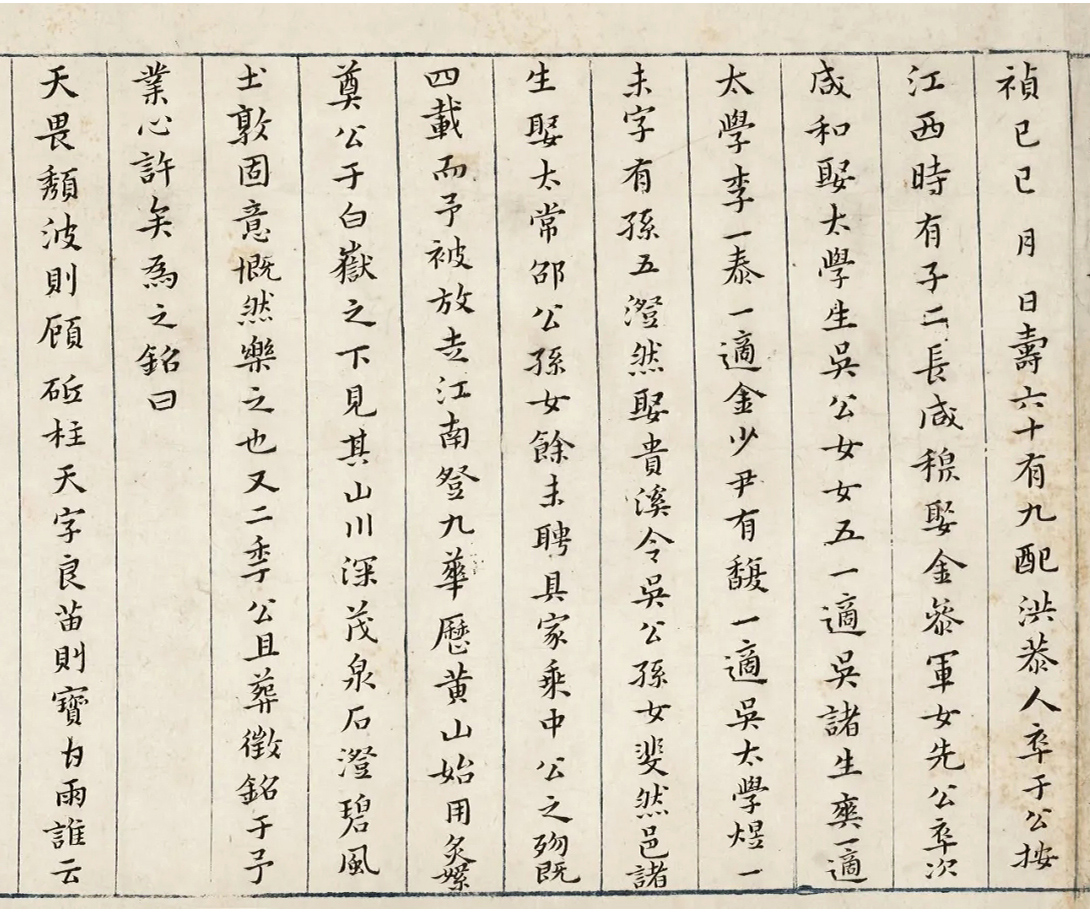 禎己巳 月 日壽六十有九配洪恭人卒于公按
江西時有子二長咸稷娶金參軍女先公卒次
咸和娶太學生吳公女女五一適吳諸生奭一適
太學李一泰一適金少尹有馥一適吳太學煜一
未字有孫五澄然娶貴溪令吳公孫女斐然邑諸
生娶太常邵公孫女餘未聘具家乘中公之歿既
四載而予被放去江南登九華歷黃山始用炙絮
奠公于白嶽之下見其山川深茂泉石澄碧風
土敦固意慨然樂之也又二季公且葬徵銘于予
業心許矣為之銘曰
天畏頹波則顧砥柱天字良苗則寶甘雨誰云